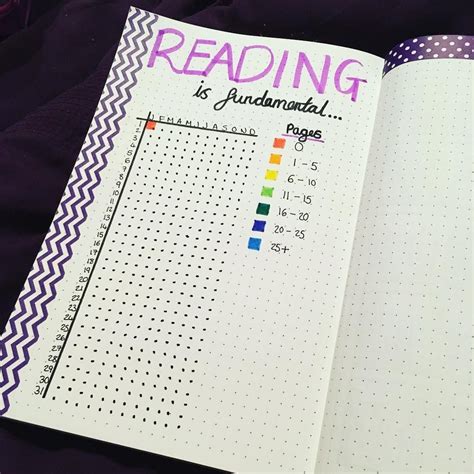 READING
is fundamental...
J F M A M J J A S O N D
Pages
0
1 - 5
6 - 10
11 - 15
16 - 20
20 - 25
25+
1
2
3
4
5
6
7
8
9
10
11
12
13
14
15
16
17
18
19
20
21
22
23
24
25
26
27
28
29
30
31